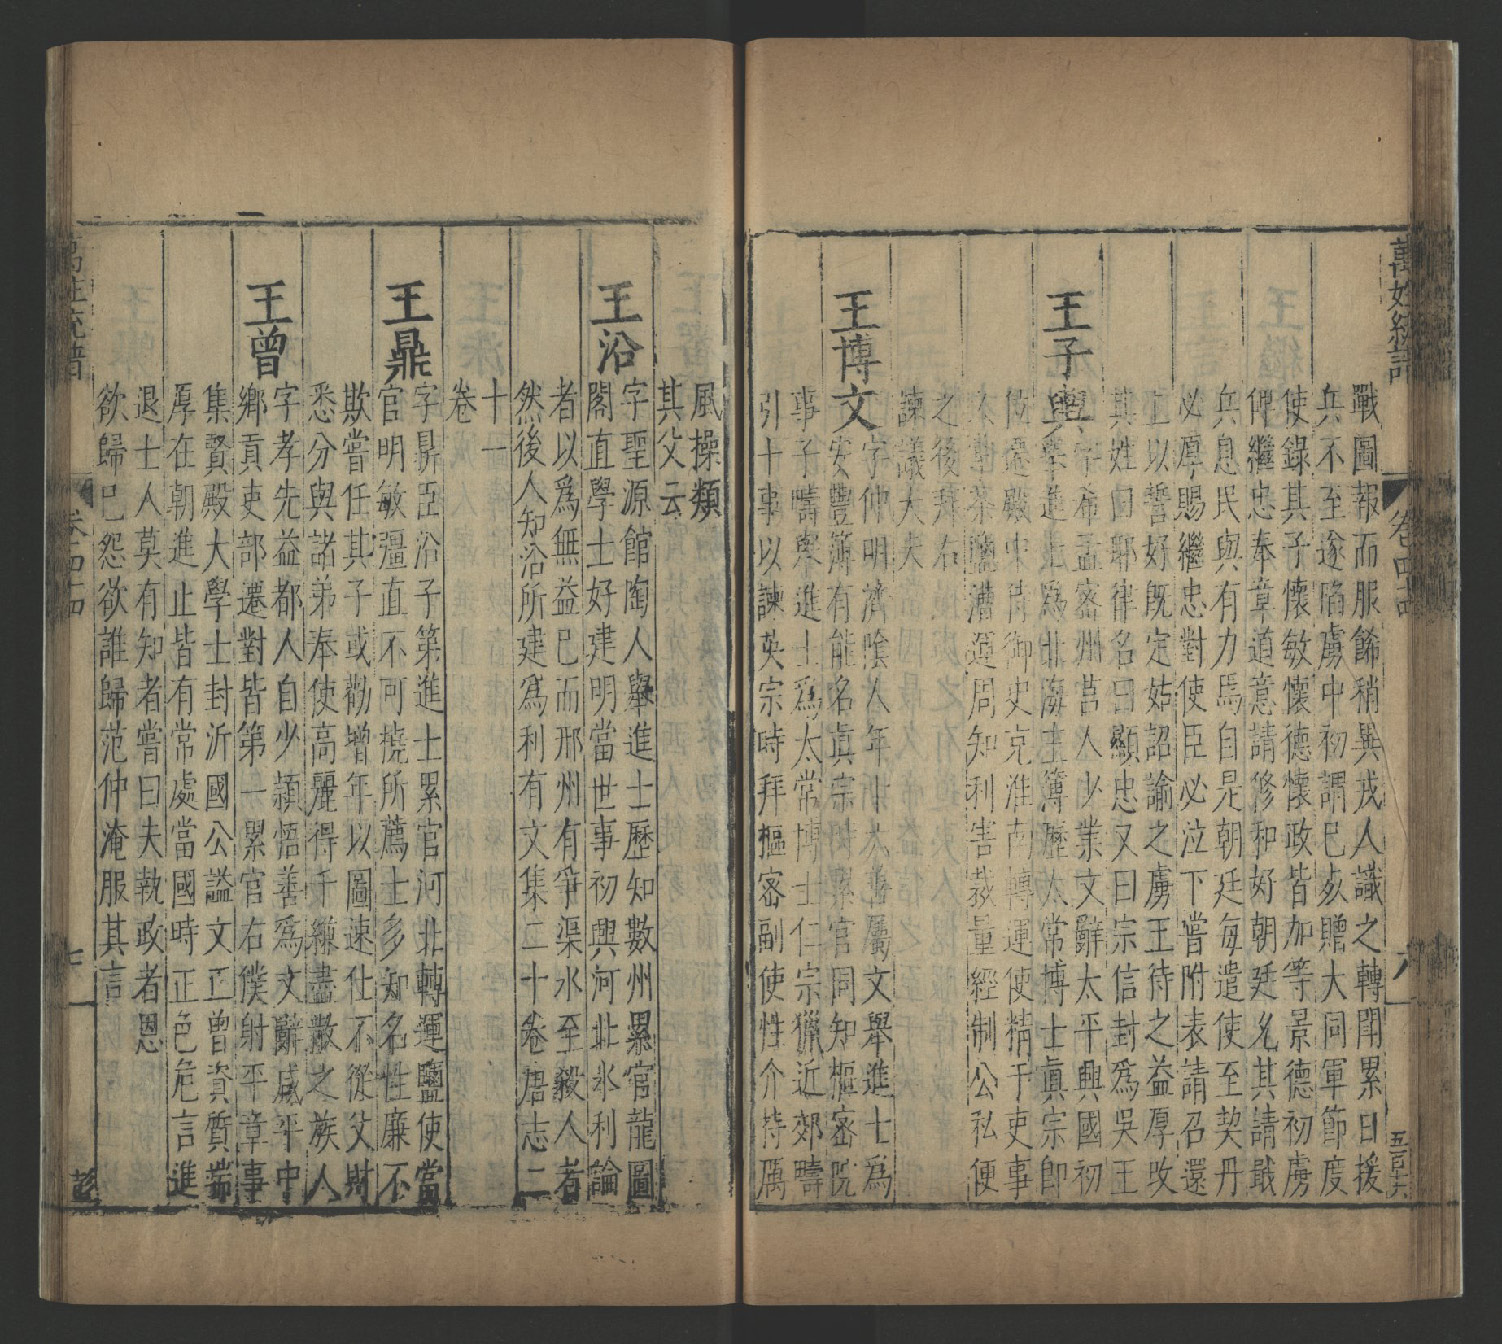 萬姓統譜
卷四十四
戰圖報而服餙稍異戎人識之轉鬭累日援
兵不至遂陷虜中初謂已歿贈大同軍節度
使錄其子懷敏懷德懷政皆加等景德初虜
俾繼忠奉章道意請修和好朝廷允其請戢
兵息民與有力焉自是朝廷每遣使至契丹
必厚賜繼忠對使臣必泣下嘗附表請召還
上以誓好既定姑詔諭之虜王待之益厚改
其姓曰耶律名曰顯忠又曰宗信封爲吳王
王子輿
字希孟密州莒人少業文辭太平興國初
舉進士爲北海主簿歷太常博士真宗即
位遷殿中侍御史克淮南轉運使精于吏事
鹽漕運周知利害裁量經制公私便
之後拜右
諫議大夫
王博文
字仲明濟陰人年
善屬文舉進士爲
安豐簿有能名真宗
累官同知樞密院
事子疇舉進士爲太常博士仁宗獵近郊疇
引十事以諫英宗時拜樞密副使性介特厲
風操類
其父云
王沿
字聖源館陶人舉進士歷知數州累官龍圖
閣直學士好建明當世事初興河北水利論
者以爲無益已而邢州有爭渠水至殺人者
然後人知沿所建爲利有文集二十卷唐志二
十一
卷
王鼎
字鼎臣沿子第進士累官河北轉運鹽使當
官明敏彊直不可撓所薦士多知名性廉不
欺嘗任其子或勸增年以圖速仕不從父財
悉分與諸弟奉使高麗得千縑盡散之族人
王曾
字孝先益都人自少穎悟善爲文辭咸平中
鄉貢吏部遷對皆第一累官右僕射平章事
集賢殿大學士封沂國公謚文正曾資質端
厚在朝進止皆有常處當國時正色危言進
退士人莫有知者嘗曰夫執政者恩
欲歸己怨欲誰歸范仲淹服其言
萬姓統譜
卷四十四